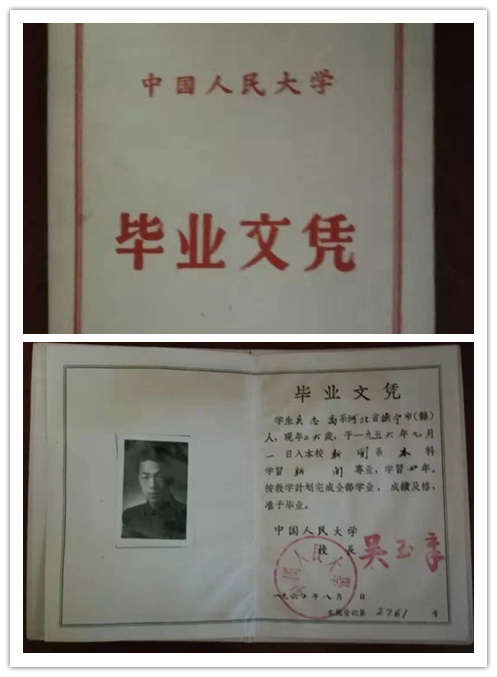 中国人民大学
毕业文凭
毕业文凭
学生吴志高系河北省抚宁市(縣)
人，现年二六歲，于一九五六年九月
一日入本校新闻系本科
学習新闻專业，学習四年。
按教学計划完成全部学业，成績及格，
准予毕业。
中国人民大学
校長 吴玉章
一九六〇年八月 日
文憑登記第2761号